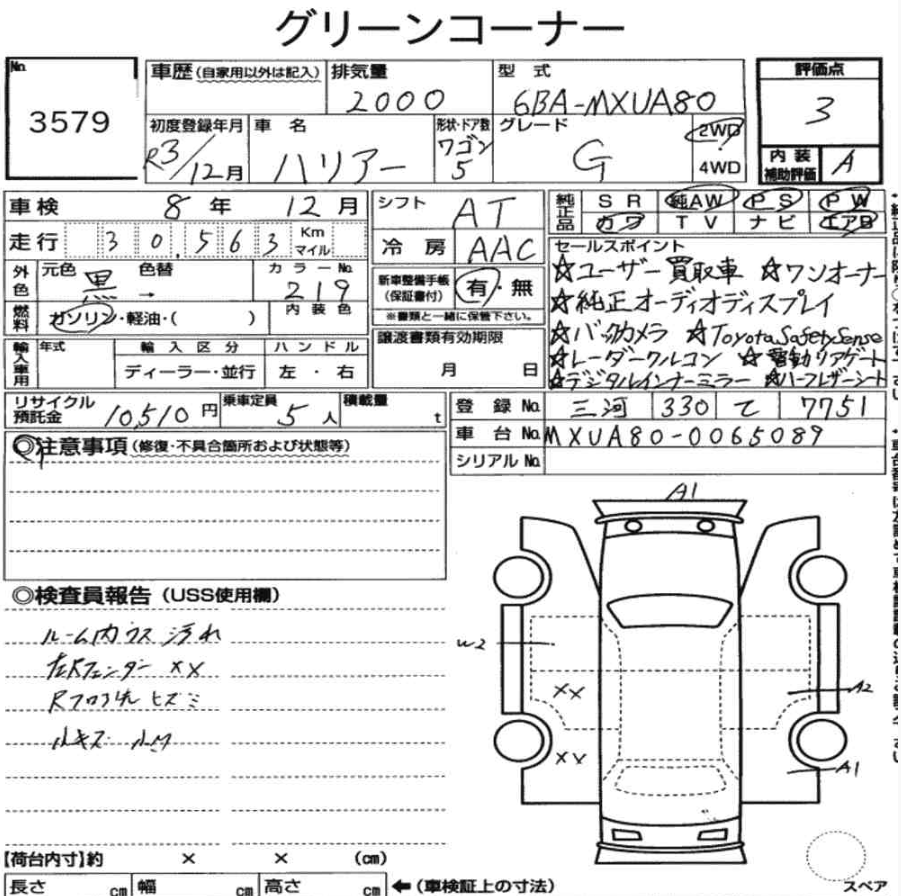 グリーンコーナー
No. 3579
車歴 (自家用以外は記入)
排気量 2000
型式 6BA-MXUA80
評価点 3
内装補助評価 A
初度登録年月 R3/12月
車名 ハリアー
形状・ドア数 ワゴン 5
グレード G
2WD
4WD
車検 8年 12月
シフト AT
純正品 SR 純AW PS PW
カワ TV ナビ エアB
走行 30,563 Km マイル
冷房 AAC
セールスポイント
☆ユーザー買取車 ☆ワンオーナー
☆純正オーディオディスプレイ
☆バックカメラ ☆ToyotaSafetySense
☆レーダークルコン ☆電動リアゲート
☆デジタルインナーミラー ☆ハーフレザーシート
外色 元色 黒 色替 →
カラーNo. 219
内装色
新車整備手帳(保証書付) 有・無
※書類と一緒に保管下さい。
燃料 ガソリン・軽油・( )
譲渡書類有効期限
月 日
輸入車用 年式 輸入区分 ハンドル
ディーラー・並行 左・右
リサイクル預託金 10,510円
乗車定員 5人
積載量 t
登録No. 三河 330 て 7751
車台No. MXUA80-0065089
シリアルNo.
◎注意事項 (修復・不具合箇所および状態等)
◎検査員報告 (USS使用欄)
ルーム内ウス汚れ
左Rフェンダー XX
小キズ 小凹
A1
W2
XX
A2
XX
A1
【荷台内寸】約 × × (cm)
長さ cm 幅 cm 高さ cm ←(車検証上の寸法)
スペア